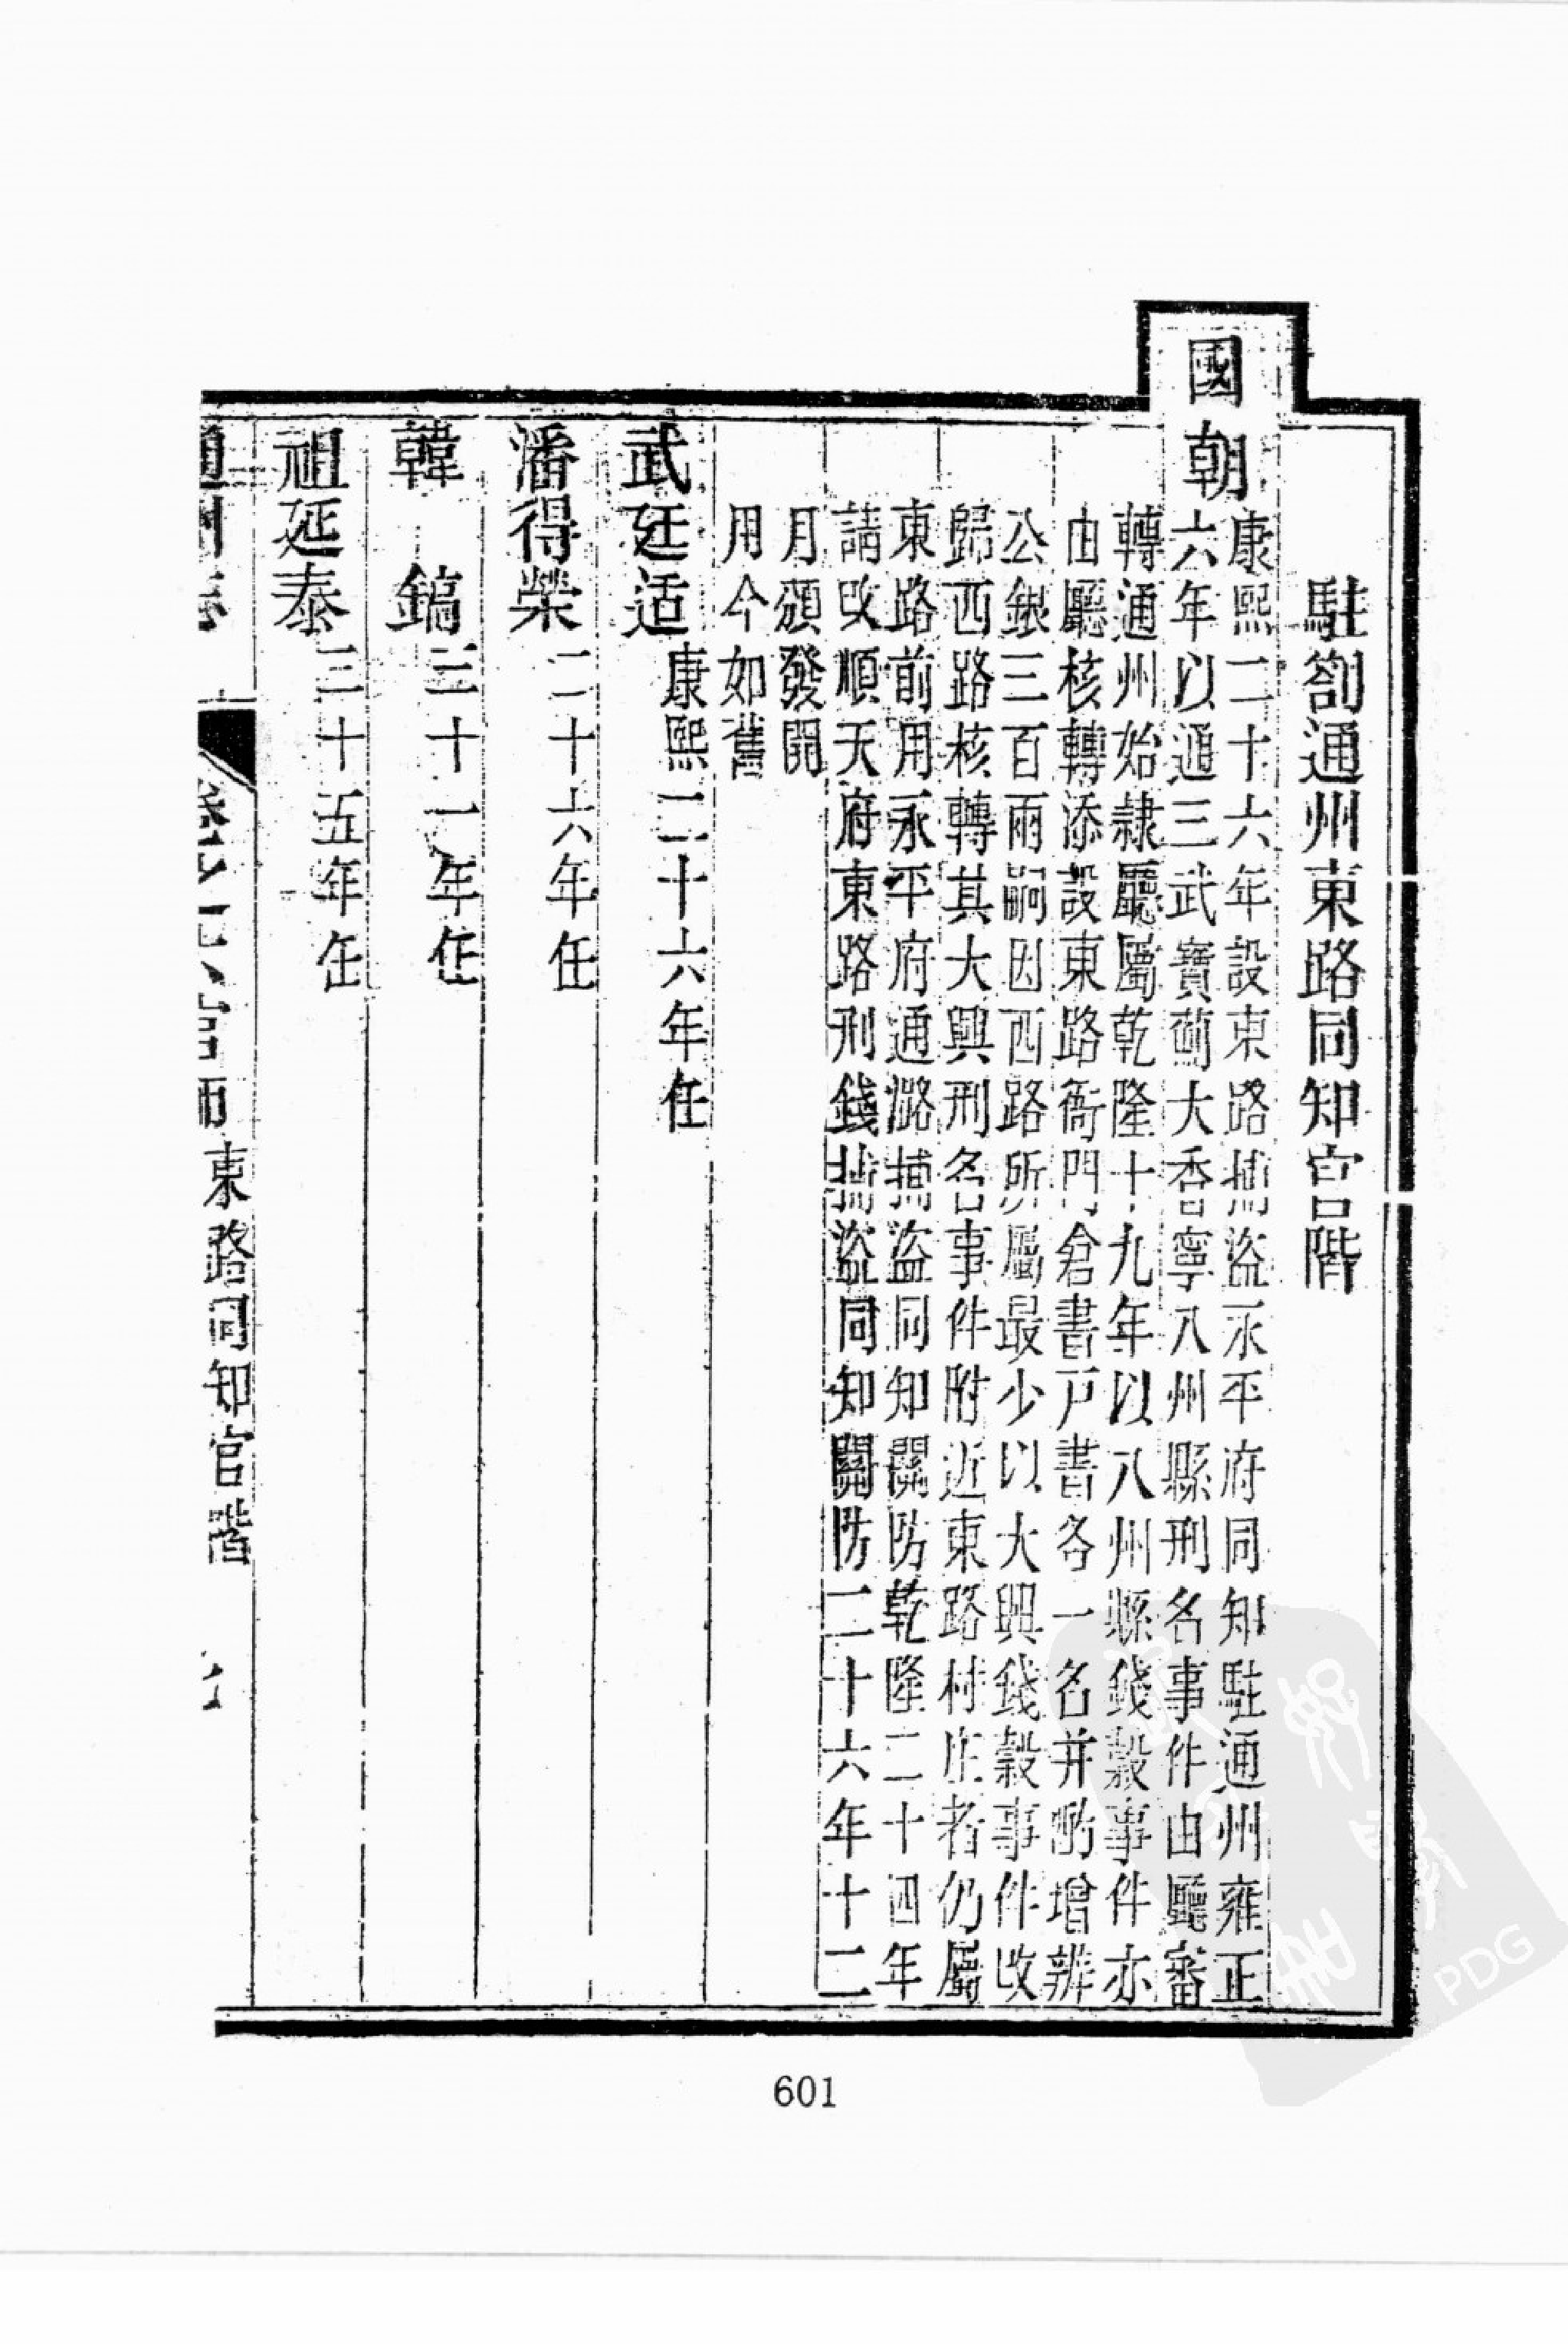 駐劄通州東路同知官階
國朝
康熙二十六年設東路捕盜永平府同知駐通州雍正
六年以通三武寶薊大香寧八州縣刑名事件由廳審
轉通州始隸廳屬乾隆十九年以八州縣錢穀事件亦
由廳核轉添設東路衙門倉書戸書各一名并酌增辦
公銀三百兩嗣因西路所屬最少以大興錢穀事件改
歸西路核轉其大興刑名事件附近東路村庄者仍屬
東路前用永平府通潞捕盜同知關防乾隆二十四年
請改順天府東路刑錢捕盜同知關防二十六年十二
月頒發開
用今如舊
武廷适康熙二十六年任
潘得榮二十六年任
韓鎬三十一年任
祖延泰三十五年任
通州志 官師東路同知官階
601
PDG